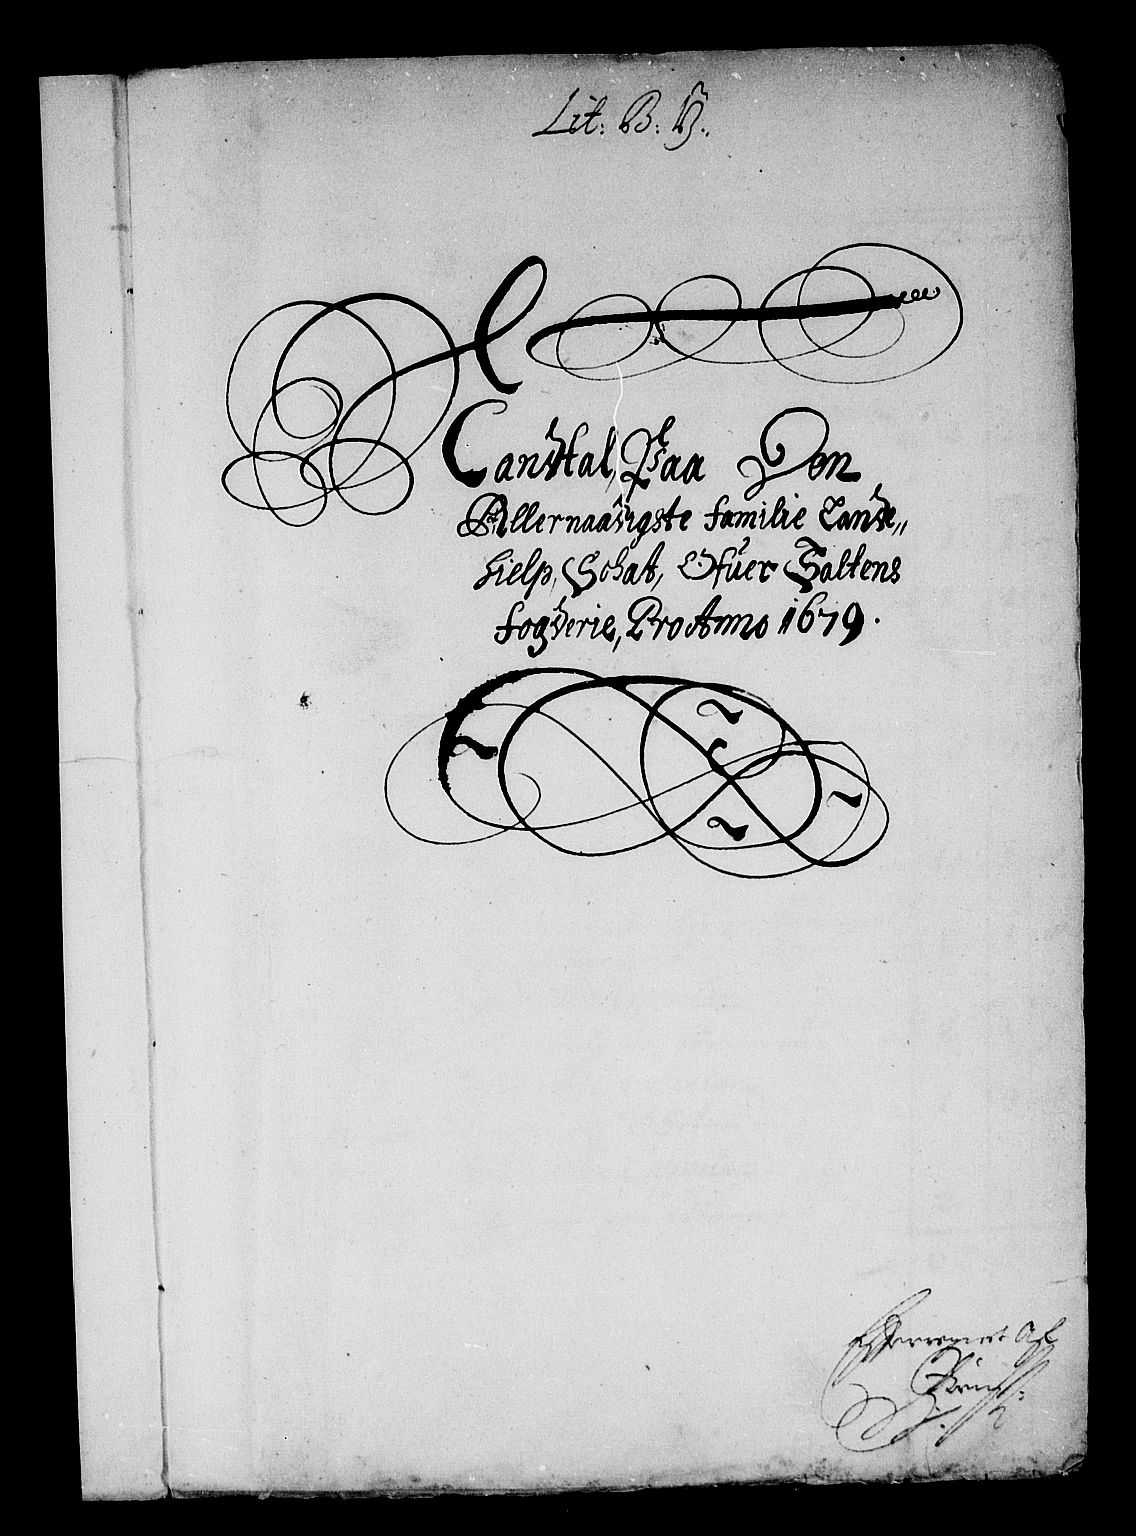 Lit: B: B.
Mandtal, Paa Den
Allernaadigste familie Lande„
hielp, Schat, Ofuer Saltens
fogderie, Pro Anno 1679.